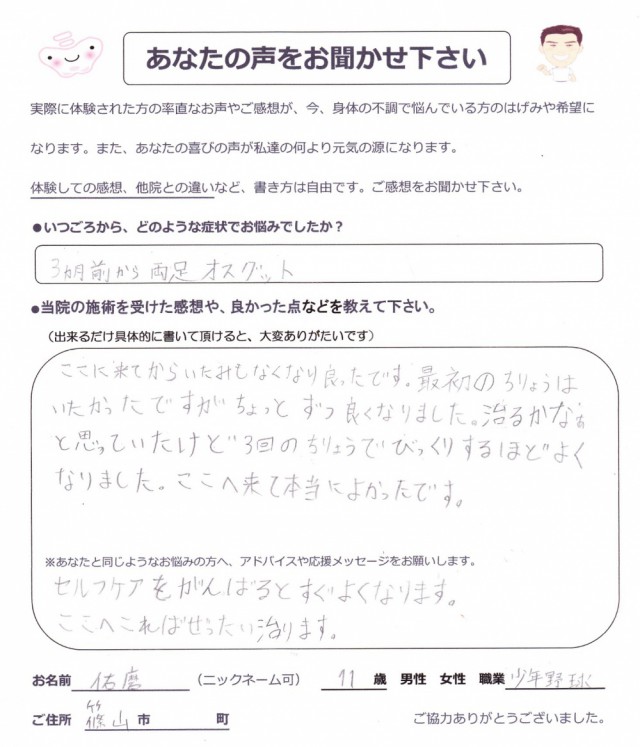 あなたの声をお聞かせ下さい
実際に体験された方の率直なお声やご感想が、今、身体の不調で悩んでいる方のはげみや希望に
なります。また、あなたの喜びの声が私達の何より元気の源になります。
体験しての感想、他院との違いなど、書き方は自由です。ご感想をお聞かせ下さい。
●いつごろから、どのような症状でお悩みでしたか？
3ヵ月前から 両足 オスグット
●当院の施術を受けた感想や、良かった点などを教えて下さい。
（出来るだけ具体的に書いて頂けると、大変ありがたいです）
ここに来てからいたみもなくなり良ったです。最初のちりょうは
いたかったですがちょっとずつ良くなりました。治るかなぁ
と思っていたけど3回のちりょうでびっくりするほどよく
なりました。ここへ来て本当によかったです。
※あなたと同じようなお悩みの方へ、アドバイスや応援メッセージをお願いします。
セルフケアをがんばるとすぐよくなります。
ここへこればぜったい治ります。
お名前 佑磨 （ニックネーム可） 11 歳 男性 女性 職業 少年野球
ご住所 篠山 市 町 ご協力ありがとうございました。